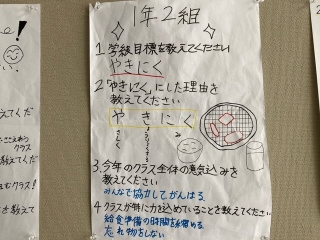 1年2組
1.学級目標を教えてください
やきにく
2.「やきにく」にした理由を
教えてください
やきにく
3.今年のクラス全体の意気込みを
教えてください
みんなで協力してがんばる
4.クラスが特に力を込めていることを教えてください
給食準備の時間を縮める
忘れ物をしない
クラス
教えて